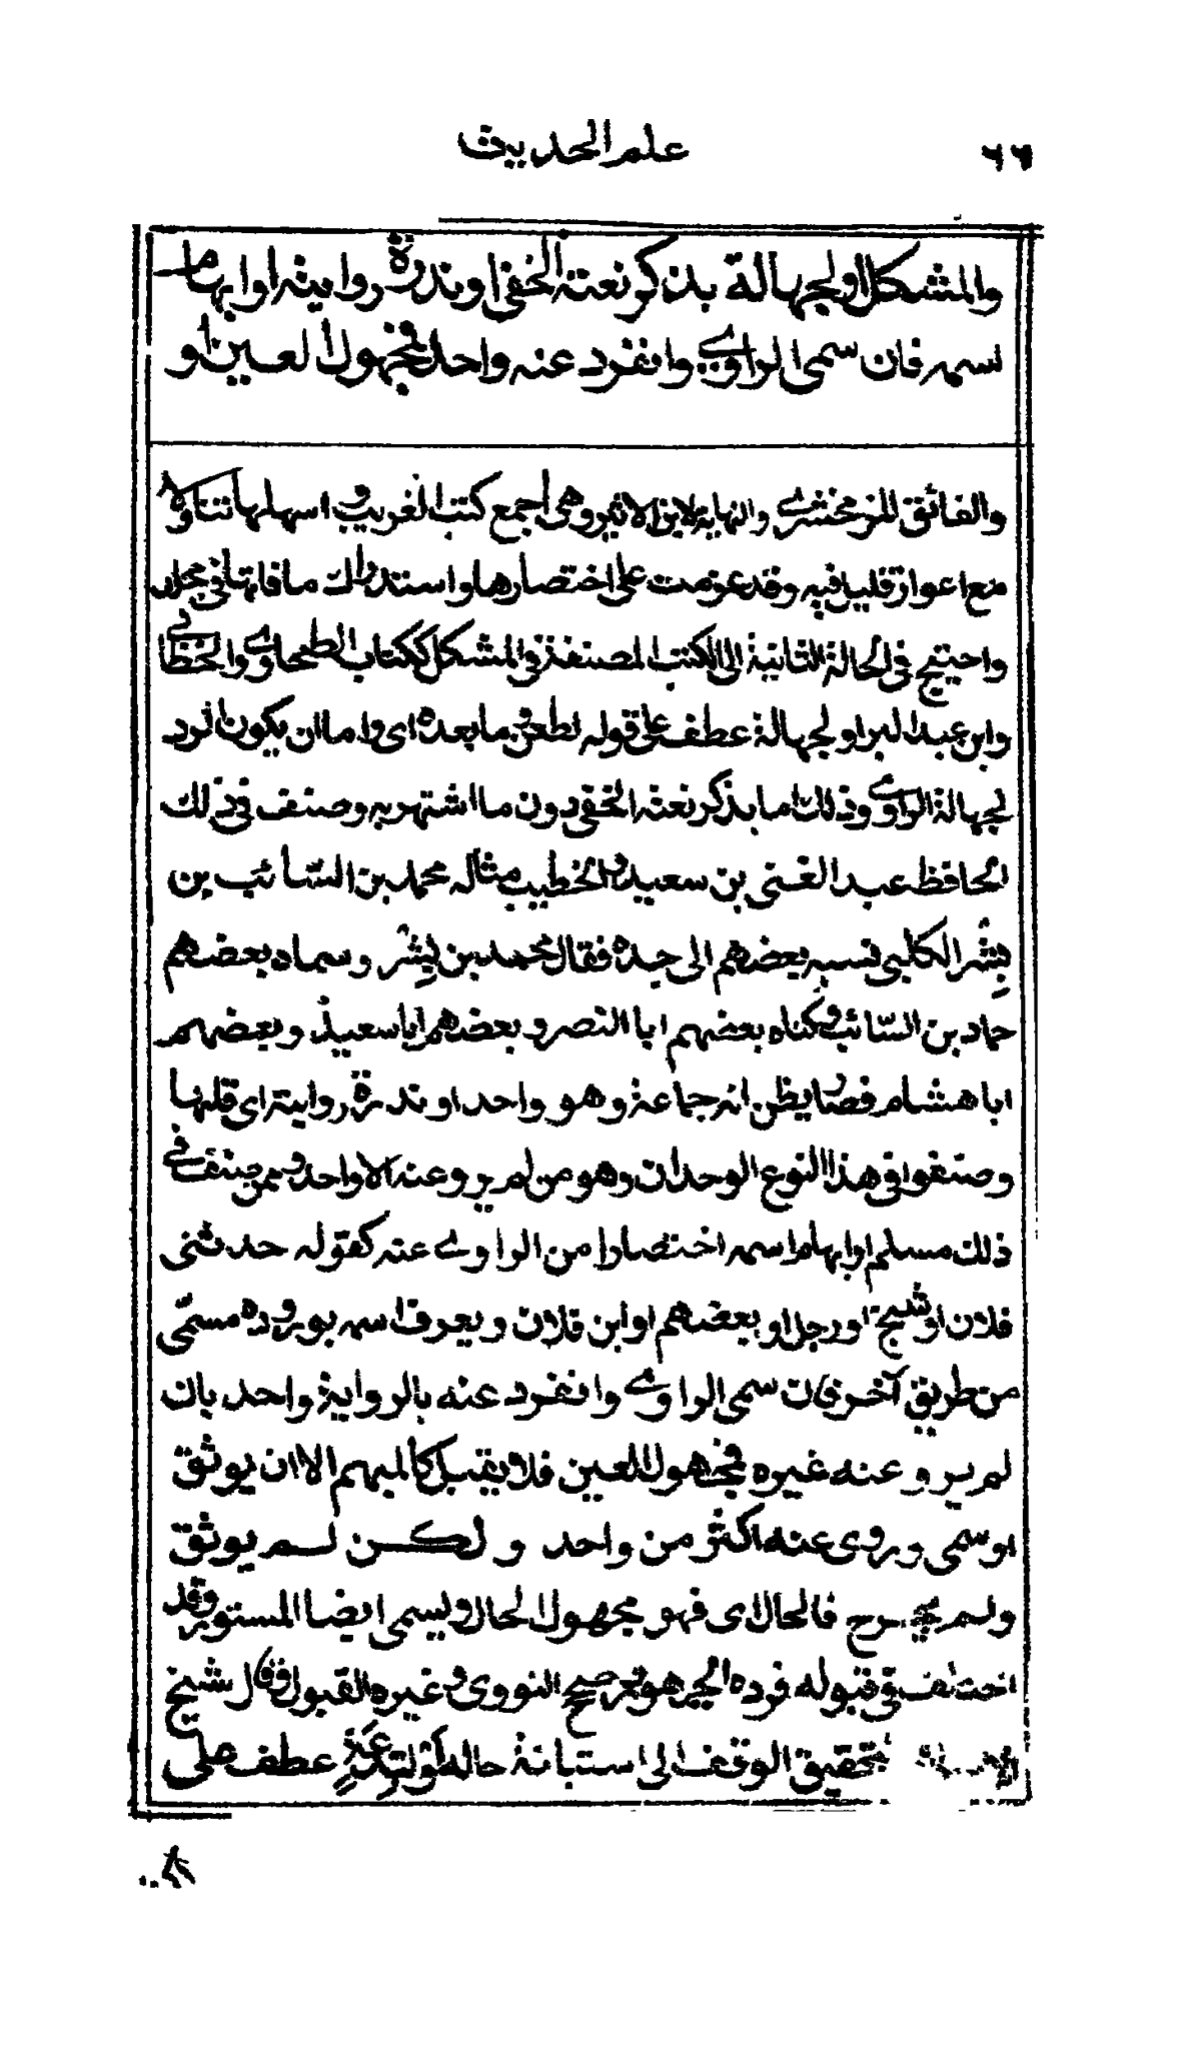 ٦٦
علم الحديث
والمشكل او لجهالة بذكر نعته الخفي او ندرة روايته او ابهام
اسمه فان سمى الراوي وانفرد عنه واحد فمجهول العين او
والفائق للزمخشري والنهاية لابن الاثير وهى اجمع كتب الغريب و اسهلها تناولا
مع اعواز قليل فيه وقد عزمت على اختصارها واستدراك ما فاتها في مجلد
واحتيج في الحالة الثانية الى الكتب المصنفة في المشكل ككتاب الطحاوي والخطابي
وابن عبد البر او لجهالة عطف على قوله لطعن وما بعده اى واما ان يكون الرد
لجهالة الراوي وذلك اما بذكر نعته الخفي دون ما اشتهر به وصنف في ذلك
الحافظ عبد الغنى بن سعيد والخطيب مثاله محمد بن السّائب بن
بِشْر الكلبي نسبه بعضهم الى جده فقال محمد بن بِشْر وسماه بعضهم
حماد بن السّائب وكناه بعضهم ابا النصر وبعضهم ابا سعيد وبعضهم
ابا هشام فصار يظن انه جماعة وهو واحد او ندرة روايته اى قلتها
وصنفوا في هذا النوع الوحدان وهو من لم يرو عنه الا واحد وممن صنف في
ذلك مسلم او ابهام اسمه اختصارا من الراوي عنه كقوله حدثنى
فلان او شيخ او رجل او بعضهم او ابن فلان ويعرف اسمه بوروده مسمّى
من طريق آخر فان سمى الراوي وانفرد عنه بالرواية واحد بان
لم يرو عنه غيره فمجهول العين فلا يقبل كالمبهم الا ان يوثق
او سمى وروى عنه اكثر من واحد ولكن لم يوثق
ولم يجرح فالحال اى فهو مجهول الحال ويسمى ايضا المستور وقد
اختلف في قبوله فرده الجمهور وصحح النووى وغيره القبول وقال شيخ
الاسلام تحقيق الوقف الى استبانة حاله او لبدعة عطف على